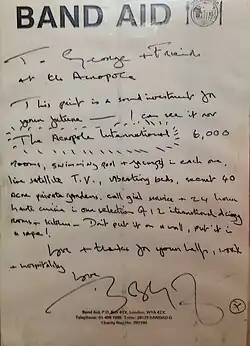 BAND AID
To George + Friends
at the Acropole
This print is a sound investment for
your future — I can see it now
The Acropole International 6,000
rooms, swimming pool + jacuzzi in each one,
live satellite T.V., vibrating beds, secret 40
acre private gardens, call girl service + 24 hour
haute cuisine in our selection of 12 international dining
rooms + Don't put it on a wall, put it in
a safe!
Love + thanks for your help, work
+ hospitality
Love
Band Aid, P.O. Box 4TX, London, W1A 4TX
Charity Reg. No: